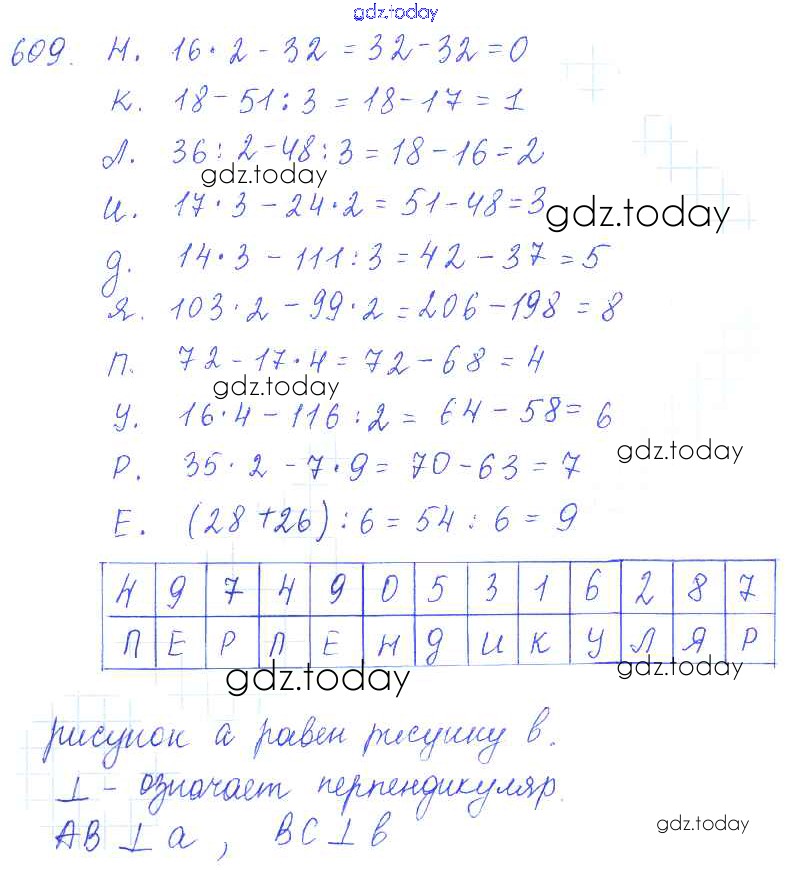 gdz.today
609. Н. 16·2-32=32-32=0
К. 18-51:3=18-17=1
Л. 36:2-48:3=18-16=2
gdz.today
И. 17·3-24·2=51-48=3
gdz.today
Д. 14·3-111:3=42-37=5
Я. 103·2-99·2=206-198=8
П. 72-17·4=72-68=4
gdz.today
У. 16·4-116:2=64-58=6
gdz.today
Р. 35·2-7·9=70-63=7
Е. (28+26):6=54:6=9
4 9 7 4 9 0 5 3 1 6 2 8 7
П Е Р П Е Н Д И К У Л Я Р
gdz.today
рисунок а равен рисунку в.
⊥ - означает перпендикуляр.
gdz.today
АВ ⊥ а, ВС ⊥ в